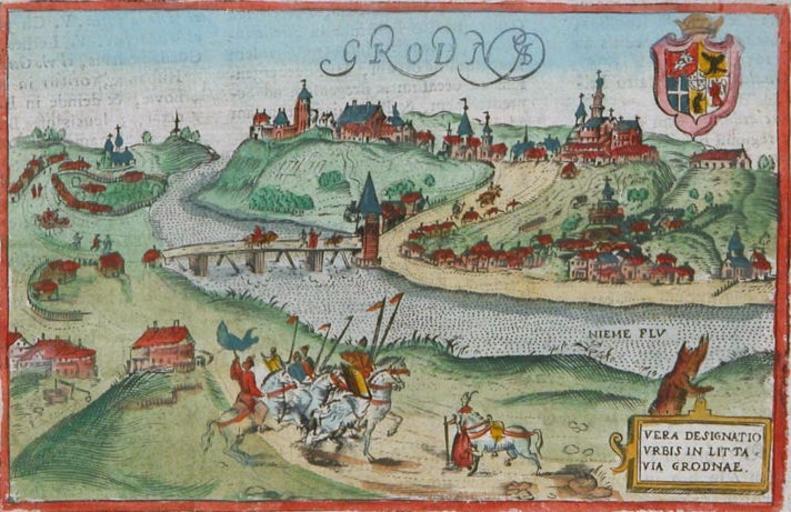 GRODNÆ
NIEME FLV
VERA DESIGNATIO
VRBIS IN LITTA
VIA GRODNAE.